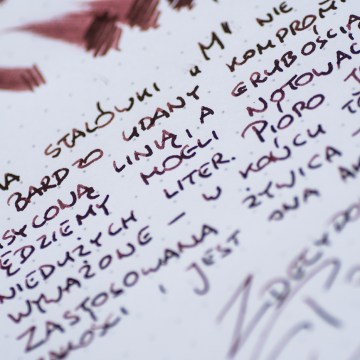 NA STALÓWKI „M" NIE
BARDZO UDANY KOMPROMI
SYCONĄ LINIĄ, A GRUBOŚCIĄ
ĘDZIEMY MOGLI NOTOWAĆ
NIEDUŻYCH LITER. PIÓRO
WYWAŻONE – W KOŃCU
ZASTOSOWANA ŻYWICA
I JEST ONA
ZDECYDO